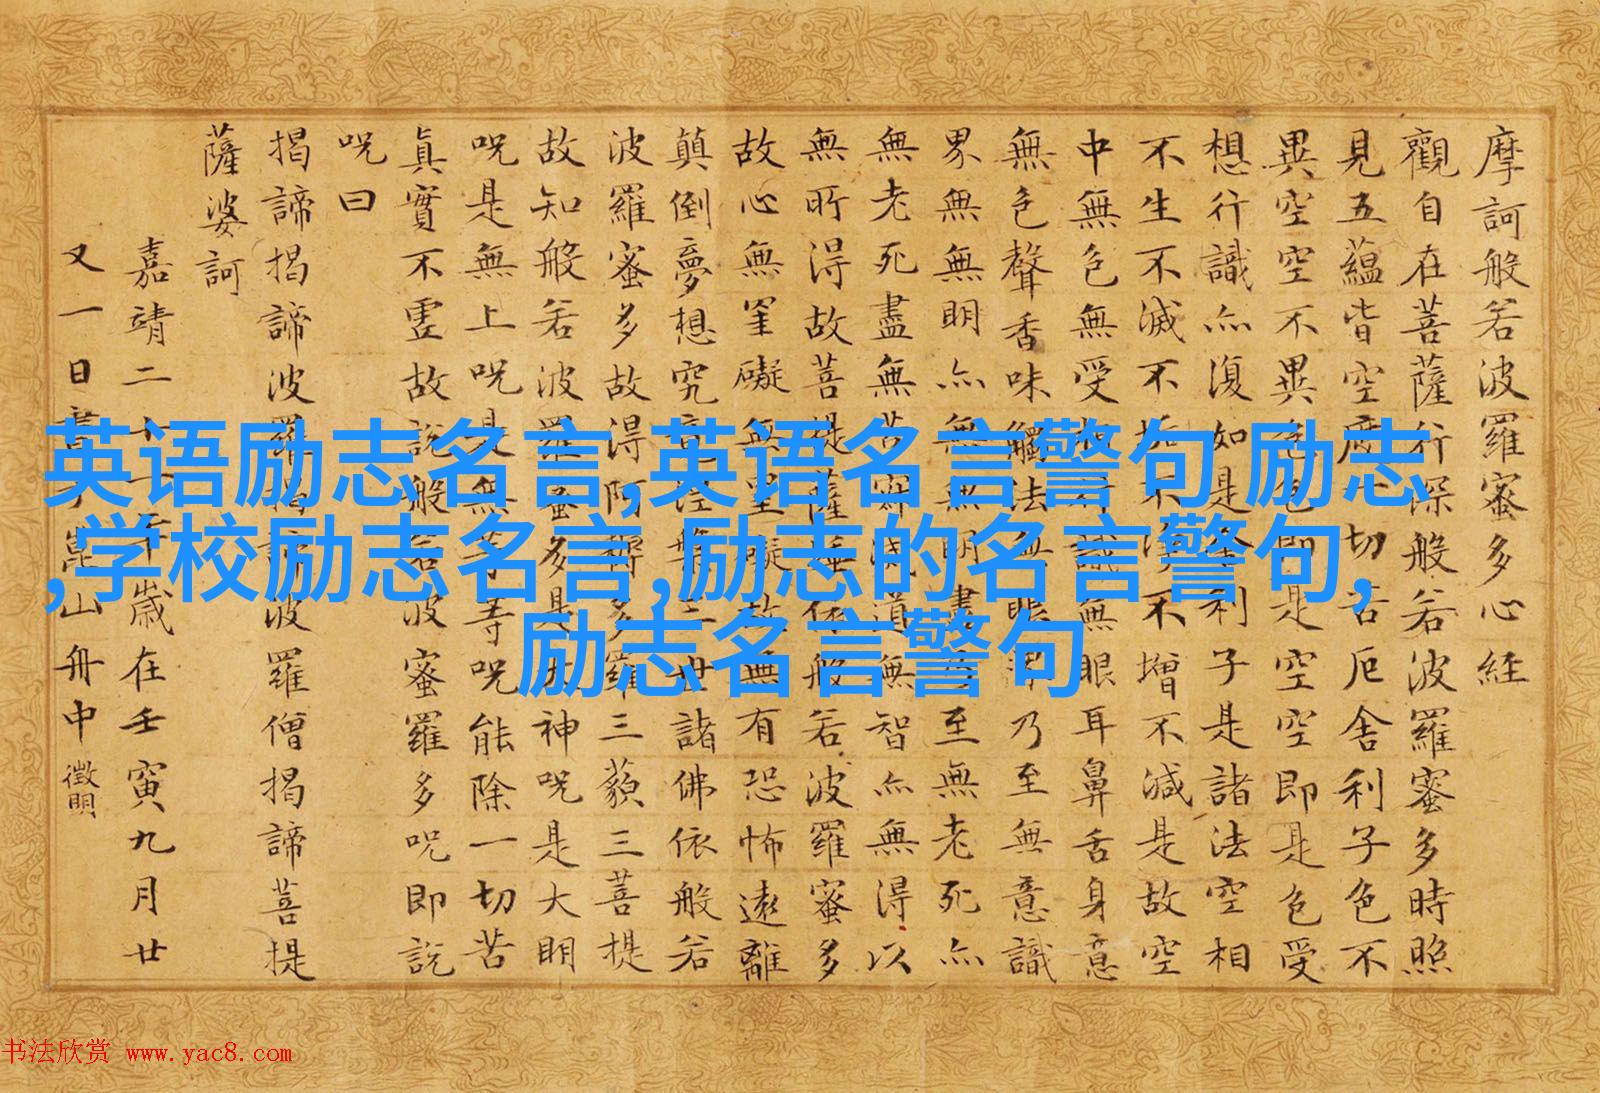 摩訶般若波羅蜜多心経
觀自在菩薩行深般若波羅蜜多時照
見五蘊皆空度切苦厄舍利子色不
異空空不異色色即是空空即是色受
想行識亦復如是舍利子是諸法空相
不生不滅不垢不淨不增不減是故空
中無色無受行識無眼耳鼻舌身意
無色聲香味觸法無眼界乃至無意識
界無無明亦無無明盡乃至無老死亦
無老死盡無苦寂滅道無智亦無得以
無所得故菩提薩埵依般若波羅蜜多
故心無罣礙無罣礙故無有恐怖遠離
顛倒夢想究竟涅槃三世諸佛依般若
波羅蜜多故得阿耨多羅三藐三菩提
故知般若波羅蜜多是大神呪是大明
呪是無上呪是無等等呪能除一切苦
真實不虛故說般若波羅蜜多呪即說
呪曰
揭諦揭諦波羅揭諦波羅僧揭諦菩提
薩婆訶
嘉靖二十一年歲在壬寅九月廿
又一日書于崑山舟中 徵明
英语励志名言,英语名言警句 励志
,学校励志名言,励志的名言警句,
励志名言警句
书法欣赏 www.yac8.com